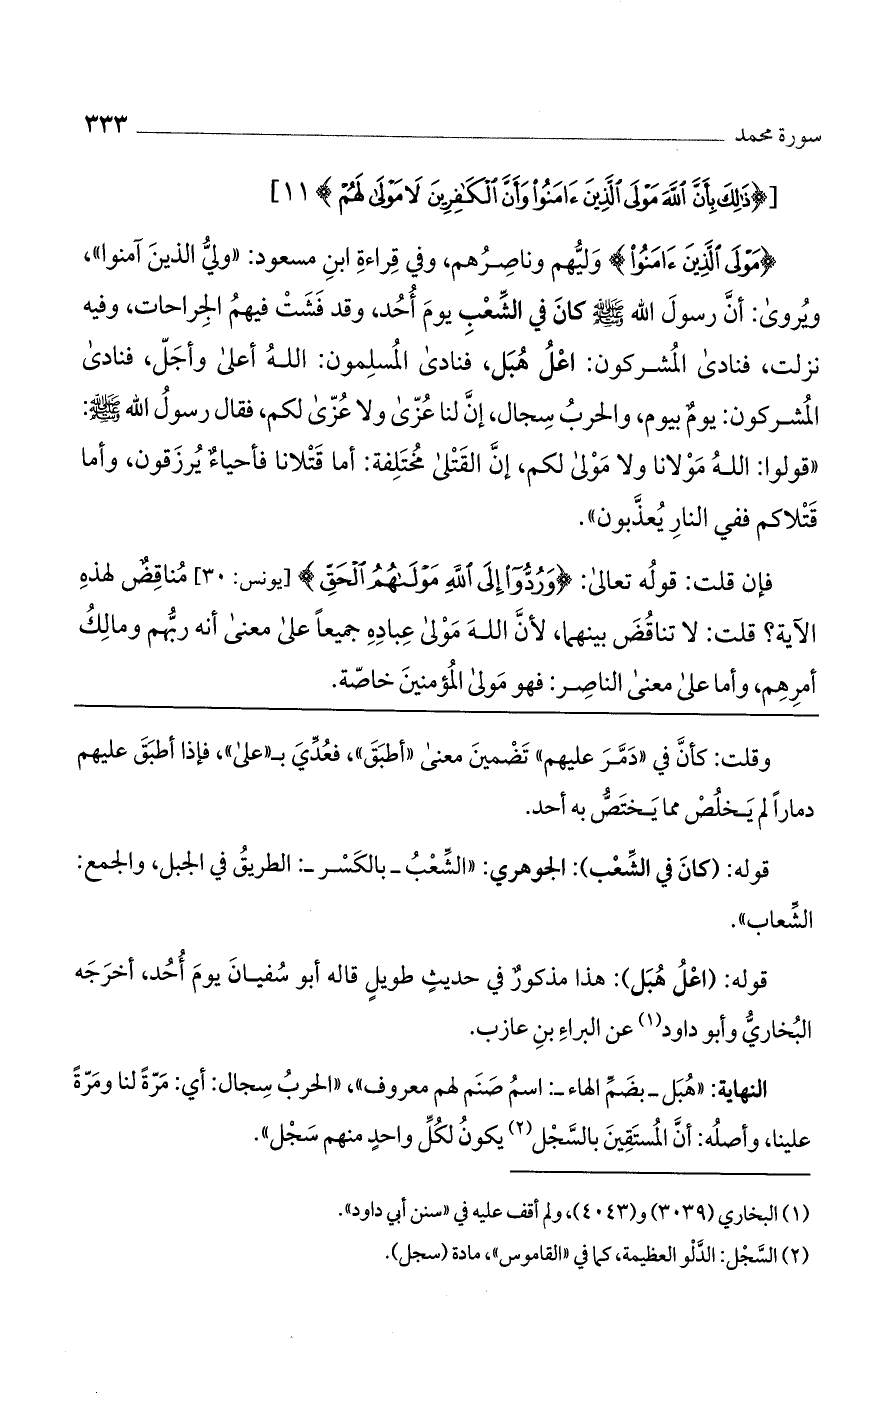 سورة محمد ٣٣٣
[﴿ذَٰلِكَ بِأَنَّ ٱللَّهَ مَوْلَى ٱلَّذِينَ ءَامَنُوا۟ وَأَنَّ ٱلْكَـٰفِرِينَ لَا مَوْلَىٰ لَهُمْ﴾ ١١]
﴿مَوْلَى ٱلَّذِينَ ءَامَنُوا۟﴾ وَليُّهم وناصِرُهم، وفي قِراءةِ ابنِ مسعود: «وليُّ الذينَ آمنوا»،
ويُروىٰ: أنَّ رسولَ الله ﷺ كانَ في الشِّعْبِ يومَ أُحُد، وقد فَشَتْ فيهمُ الجِراحات، وفيه
نزلت، فنادىٰ المُشركون: اعْلُ هُبَل، فنادىٰ المُسلِمون: اللهُ أعلىٰ وأجَلّ، فنادىٰ
المُشركون: يومٌ بيوم، والحربُ سِجال، إنَّ لنا عُزّىٰ ولا عُزّىٰ لكم، فقال رسولُ الله ﷺ:
«قولوا: اللهُ مَوْلانا ولا مَوْلىٰ لكم، إنَّ القَتْلىٰ مُختَلِفة: أما قَتْلانا فأحياءٌ يُرزَقون، وأما
قَتْلاكم ففي النارِ يُعذَّبون».
فإن قلت: قولُه تعالىٰ: ﴿وَرُدُّوٓا۟ إِلَى ٱللَّهِ مَوْلَىٰهُمُ ٱلْحَقِّ﴾ [يونس: ٣٠] مُناقِضٌ لهذهِ
الآية؟ قلت: لا تناقُضَ بينهما، لأنَّ اللهَ مَوْلىٰ عِبادِهِ جميعاً علىٰ معنىٰ أنه ربُّهم ومالِكُ
أمرِهِم، وأما علىٰ معنىٰ الناصِر: فهو مَولىٰ المُؤمنينَ خاصّة.
وقلت: كأنَّ في «دَمَّرَ عليهم» تَضْمينَ معنىٰ «أطبَقَ»، فعُدِّيَ بـ«علىٰ»، فإذا أطبَقَ عليهم
دماراً لم يَخلُصْ مما يَختَصُّ به أحد.
قوله: (كانَ في الشِّعْب): الجوهري: «الشِّعْبُ ـ بالكَسْر ـ: الطريقُ في الجبل، والجمع:
الشِّعاب».
قوله: (اعْلُ هُبَل): هذا مذكورٌ في حديثٍ طويلٍ قاله أبو سُفيانَ يومَ أُحُد، أخرَجَه
البُخاريُّ وأبو داود(١) عن البراءِ بنِ عازب.
النهاية: «هُبَل ـ بضَمِّ الهاء ـ: اسمُ صَنَم لهم معروف»، «الحربُ سِجال: أي: مَرّةً لنا ومَرّةً
علينا، وأصلُه: أنَّ المُستَقِينَ بالسَّجْل(٢) يكونُ لكُلِّ واحدٍ منهم سَجْل».
(١) البخاري (٣٠٣٩) و(٤٠٤٣)، ولم أقف عليه في «سنن أبي داود».
(٢) السَّجْل: الدَّلْو العظيمة، كما في «القاموس»، مادة (سجل).